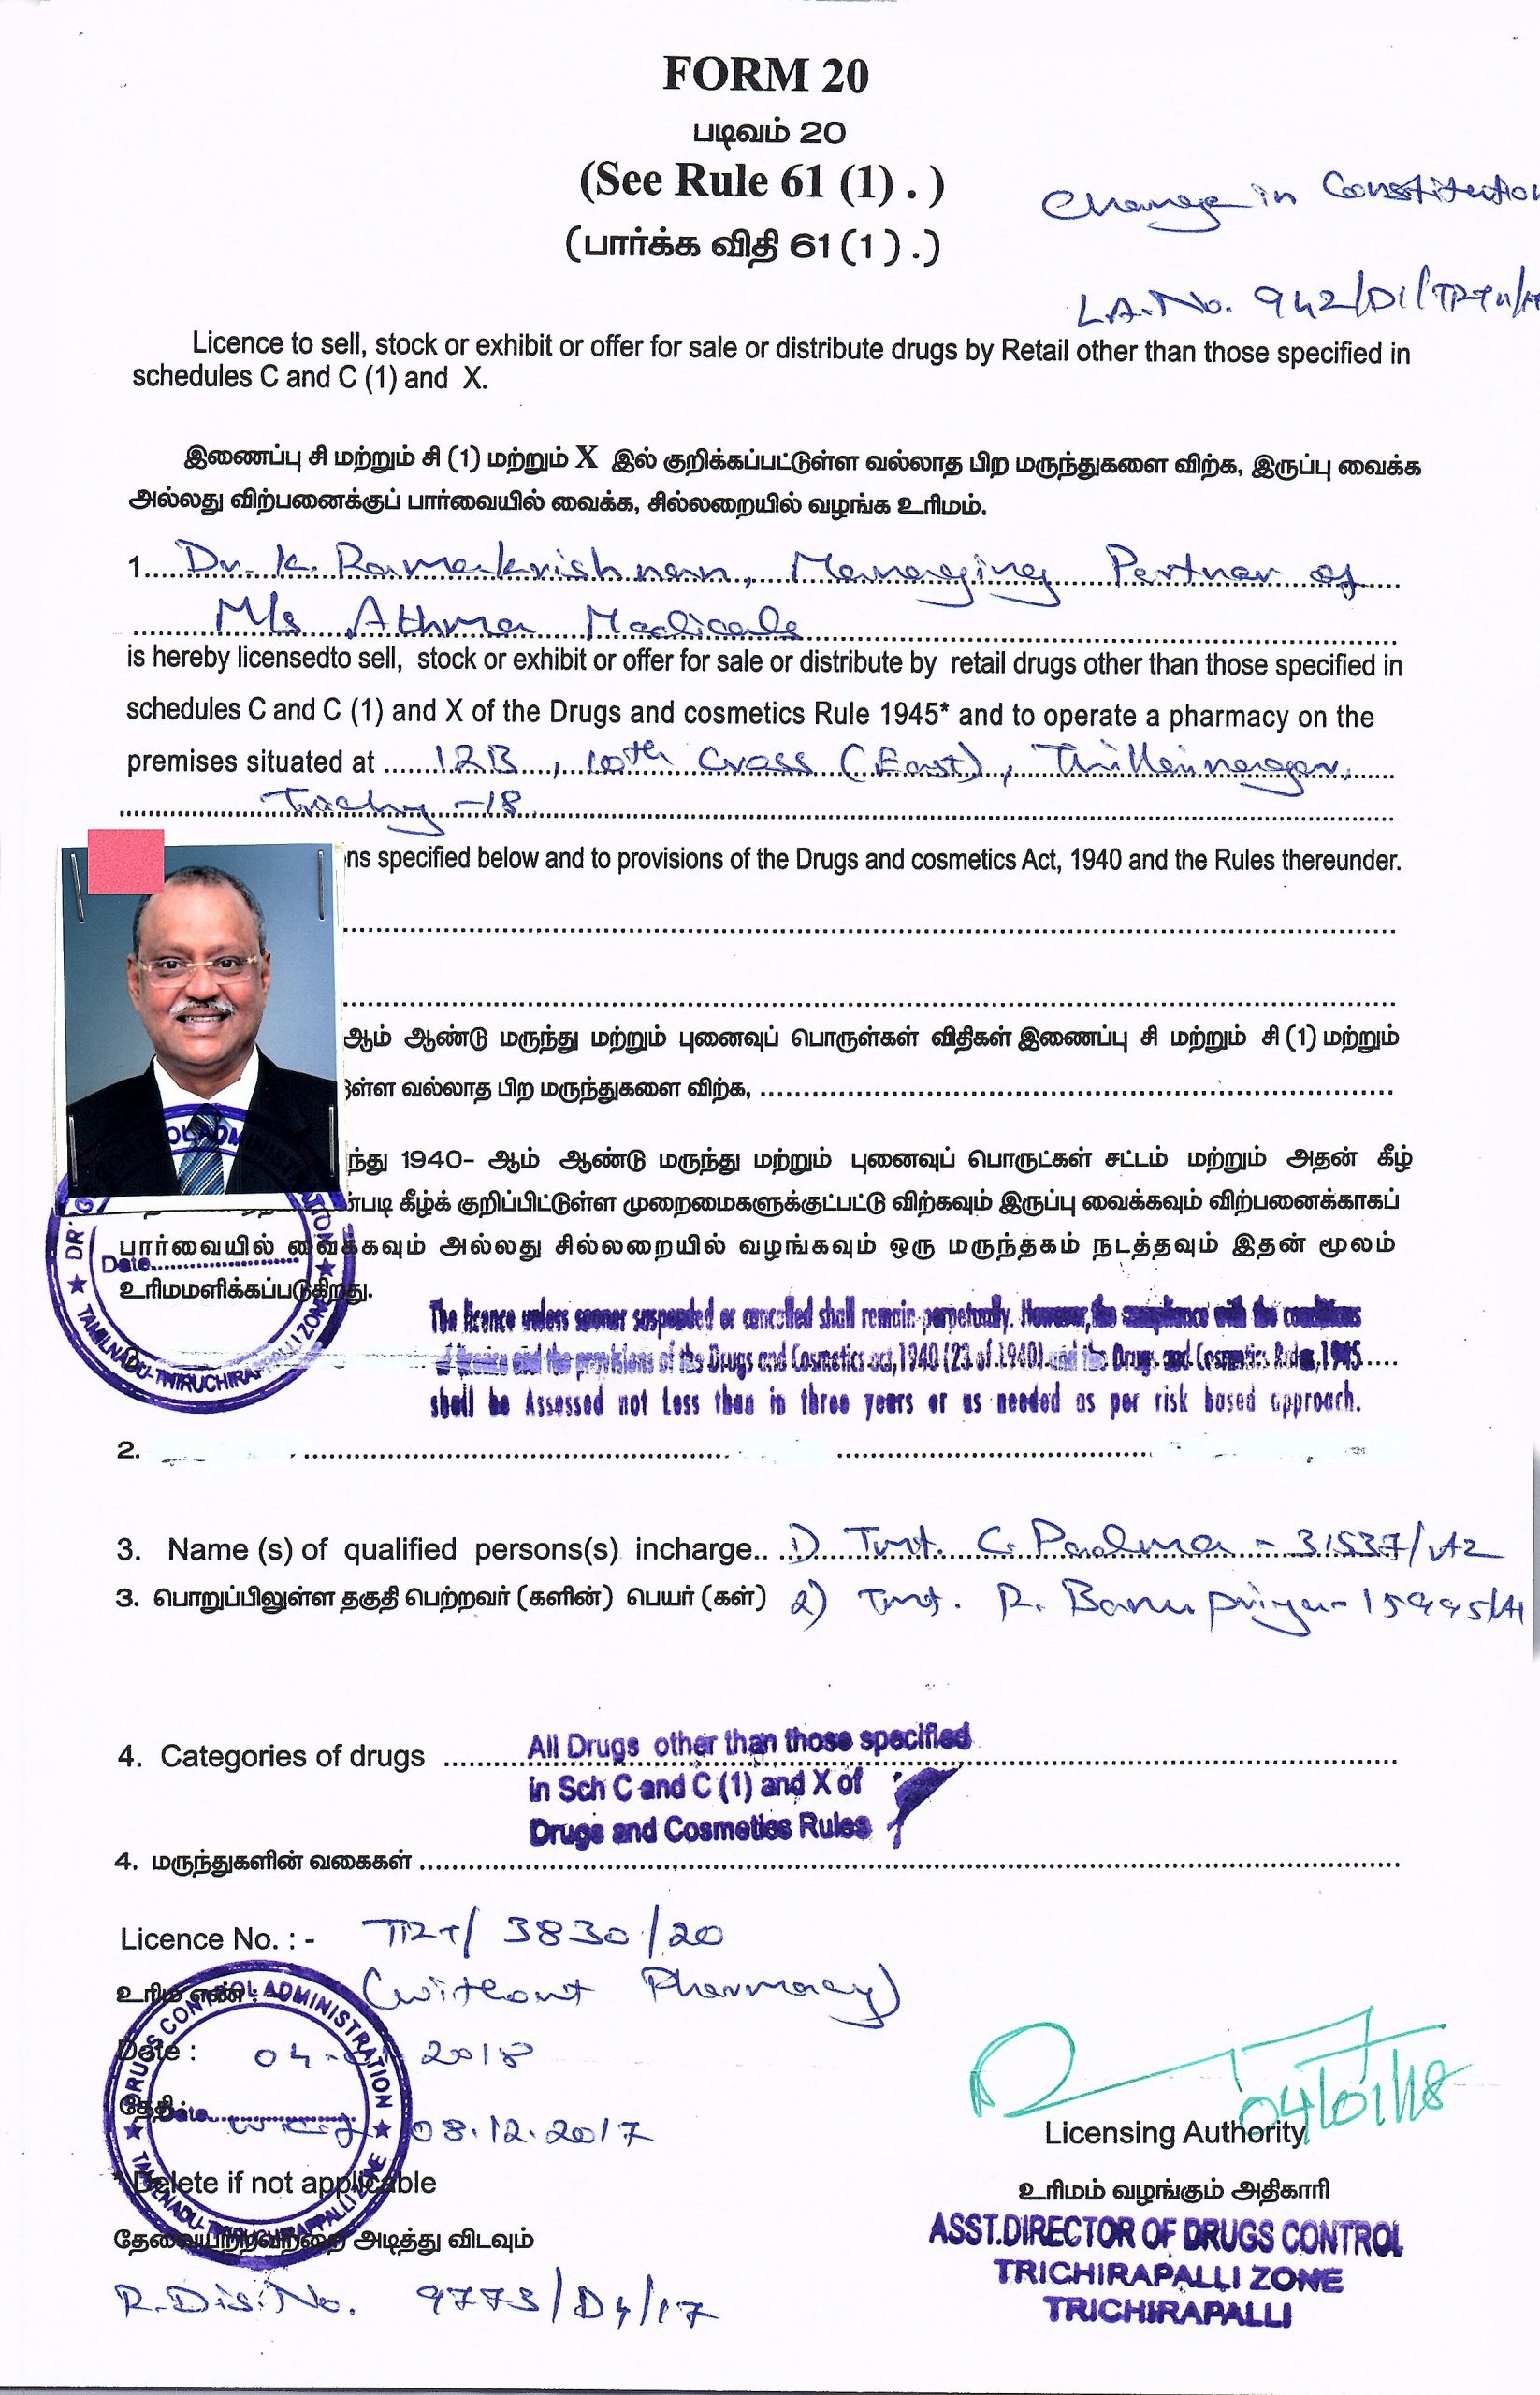 FORM 20
படிவம் 20
(See Rule 61 (1) . )
(பார்க்க விதி 61 (1) .)
Change in Constitution
L.A.No. 942/D1/
Licence to sell, stock or exhibit or offer for sale or distribute drugs by Retail other than those specified in
schedules C and C (1) and X.
இணைப்பு சி மற்றும் சி (1) மற்றும் X இல் குறிக்கப்பட்டுள்ள வல்லாத பிற மருந்துகளை விற்க, இருப்பு வைக்க
அல்லது விற்பனைக்குப் பார்வையில் வைக்க, சில்லறையில் வழங்க உரிமம்.
1. Dr. K. Ramakrishnan, Managing Partner of
M/s Athma Medicals
is hereby licensedto sell, stock or exhibit or offer for sale or distribute by retail drugs other than those specified in
schedules C and C (1) and X of the Drugs and cosmetics Rule 1945* and to operate a pharmacy on the
premises situated at 12B, 10th Cross (East), Thillainagar,
Trichy -18
ns specified below and to provisions of the Drugs and cosmetics Act, 1940 and the Rules thereunder.
ஆம் ஆண்டு மருந்து மற்றும் புனைவுப் பொருள்கள் விதிகள் இணைப்பு சி மற்றும் சி (1) மற்றும்
ள்ள வல்லாத பிற மருந்துகளை விற்க,
ந்து 1940- ஆம் ஆண்டு மருந்து மற்றும் புனைவுப் பொருட்கள் சட்டம் மற்றும் அதன் கீழ்
ன்படி கீழ்க் குறிப்பிட்டுள்ள முறைமைகளுக்குட்பட்டு விற்கவும் இருப்பு வைக்கவும் விற்பனைக்காகப்
பார்வையில் வைக்கவும் அல்லது சில்லறையில் வழங்கவும் ஒரு மருந்தகம் நடத்தவும் இதன் மூலம்
Date
உரிமமளிக்கப்படுகிறது.
TAMILNADU-THIRUCHIRAPPALLI ZONE
The licence unless sooner suspended or cancelled shall remain perpetually. However, the compliance with the conditions
of licence and the provisions of the Drugs and Cosmetics act, 1940 (23 of 1940) and the Drugs and Cosmetics Rules, 1945
shall be Assessed not Less than in three years or as needed as per risk based approach.
2.
3. Name (s) of qualified persons(s) incharge.. 1) Tmt. C. Padma - 31537/A2
3. பொறுப்பிலுள்ள தகுதி பெற்றவர் (களின்) பெயர் (கள்) 2) Tmt. R. Banupriya - 15995/A1
4. Categories of drugs All Drugs other than those specified
in Sch C and C (1) and X of
Drugs and Cosmetics Rules
4. மருந்துகளின் வகைகள்
Licence No. : - TRT/ 3830/20
உரிம எண் : - (without Pharmacy)
DRUGS CONTROL ADMINISTRATION
Date : 04- 2018
04/01/18
தேதி
Date
08.12.2017
Licensing Authority
* Delete if not applicable
TAMILNADU-THIRUCHIRAPPALLI ZONE
உரிமம் வழங்கும் அதிகாரி
தேவையற்றவற்றை அடித்து விடவும்
ASST.DIRECTOR OF DRUGS CONTROL
TRICHIRAPALLI ZONE
TRICHIRAPALLI
R.Dis.No. 9773/D4/17